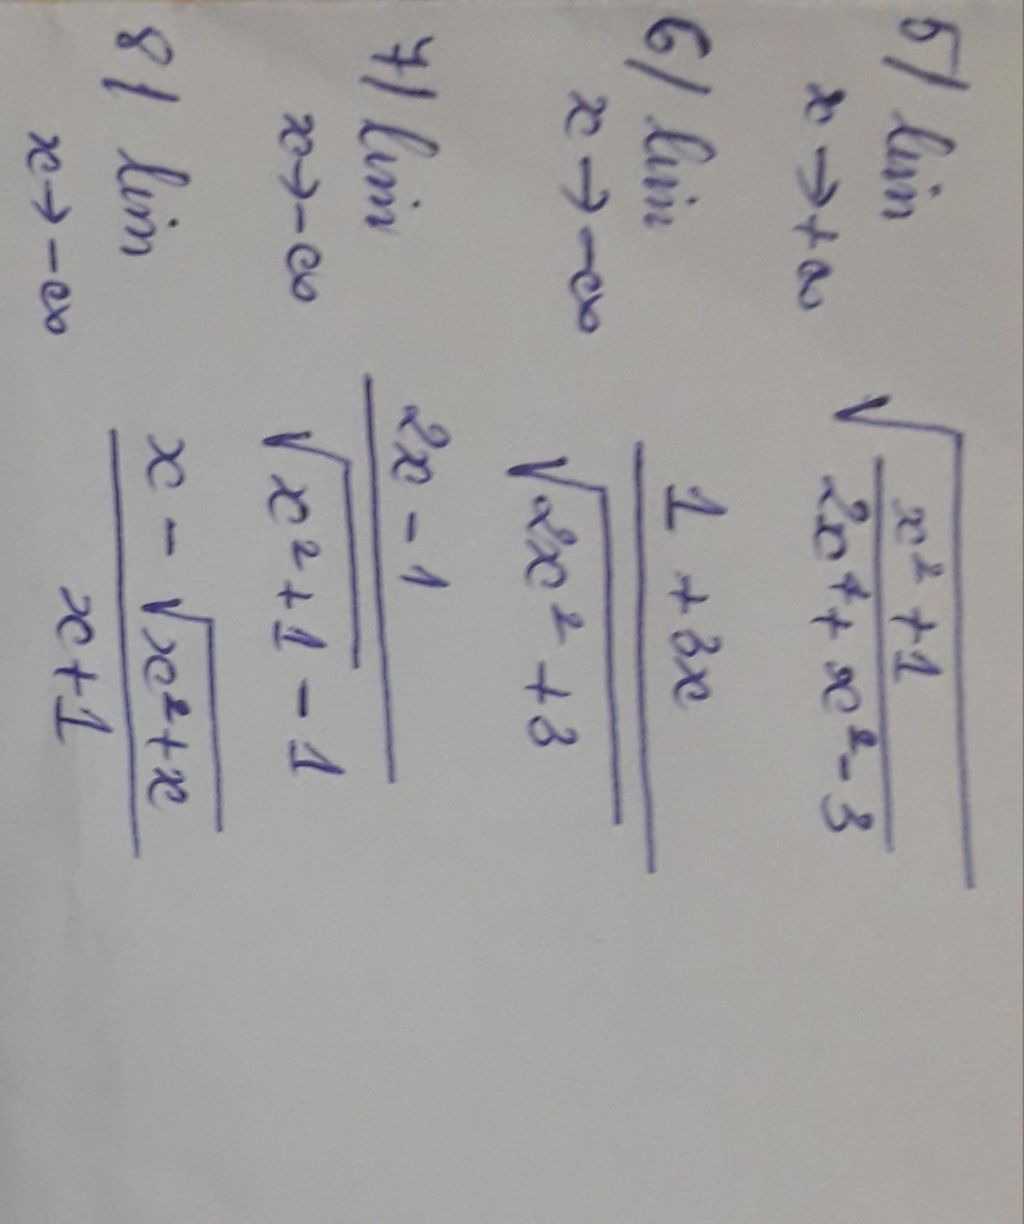 5/ lim x→+∞ √((x²+1)/(2x⁴+x²-3))
6/ lim x→-∞ (1+3x)/√(2x²+3)
7/ lim x→-∞ (2x-1)/(√(x²+1)-1)
8/ lim x→-∞ (x-√(x²+x))/(x+1)